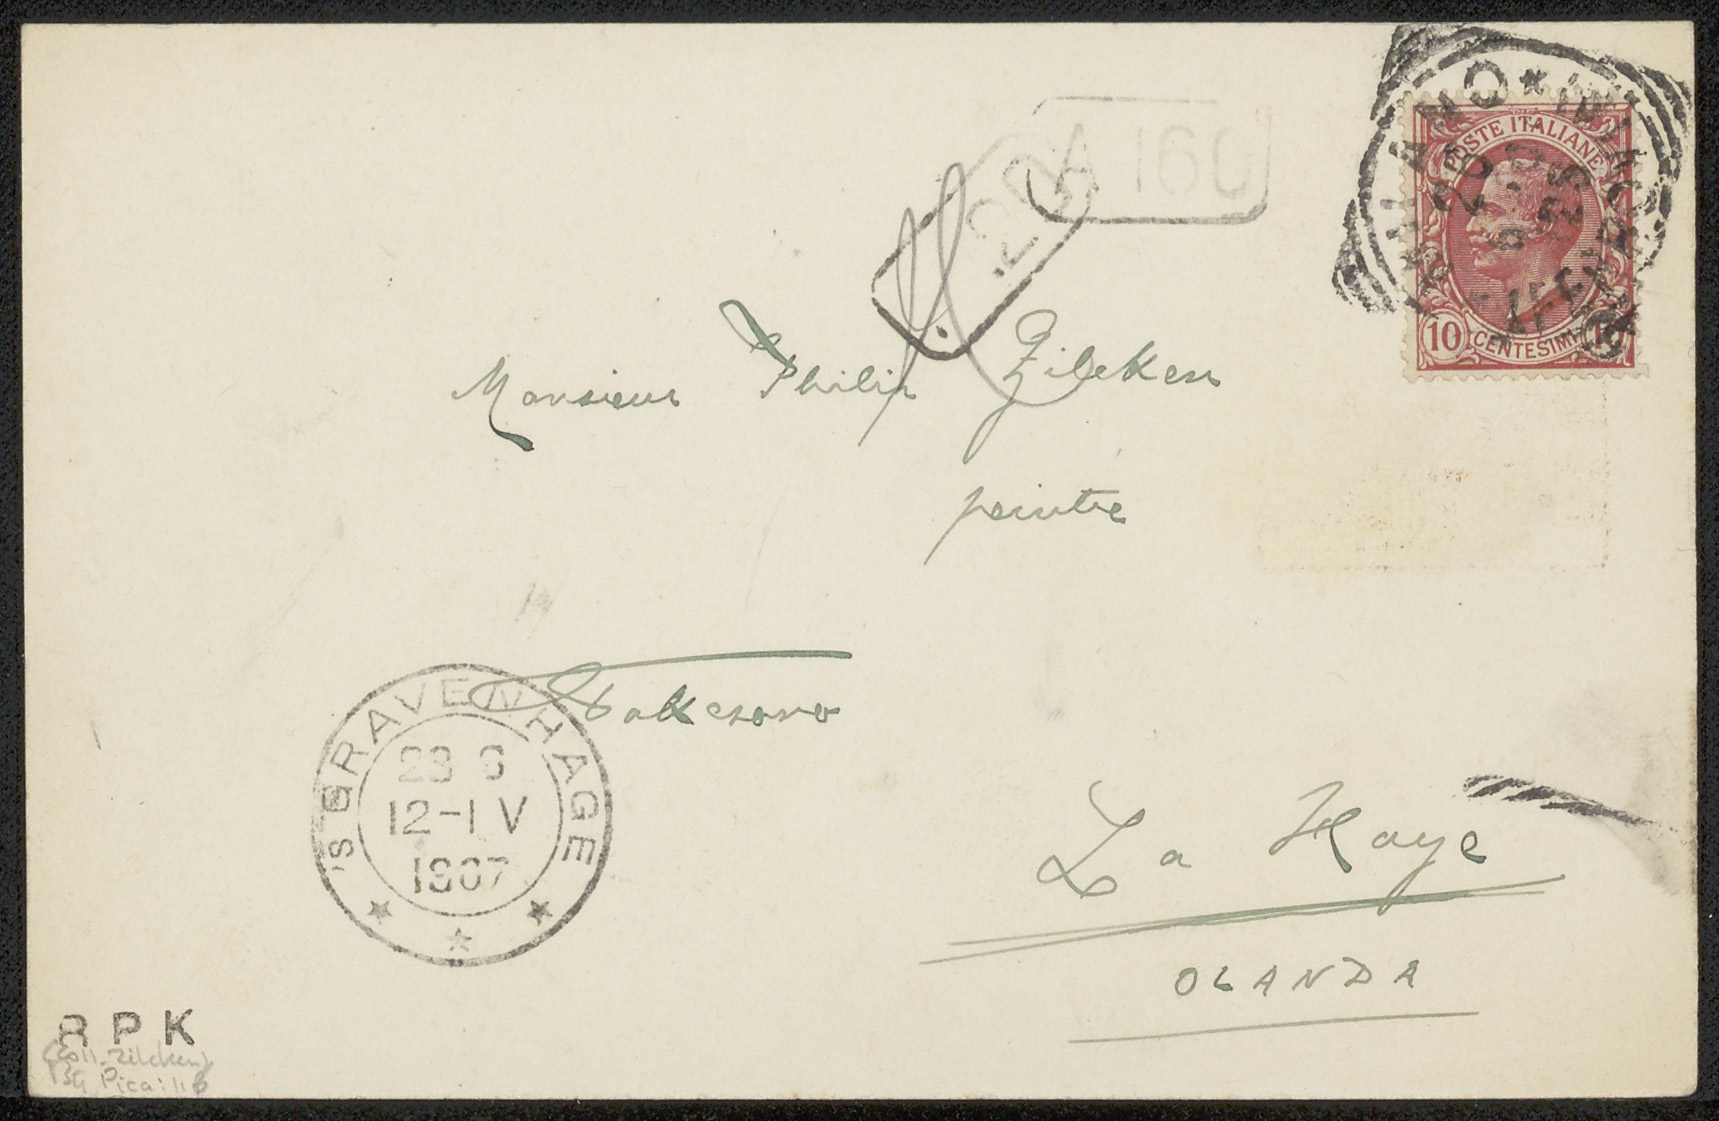 A 160
.20
POSTE ITALIANE
10 CENTESIMI
MILANO
Monsieur Philip Zilcken
peintre
'S GRAVENHAGE
23 6
12-1 V
1907
La Haye
OLANDA
RPK
(Coll. Zilcken)